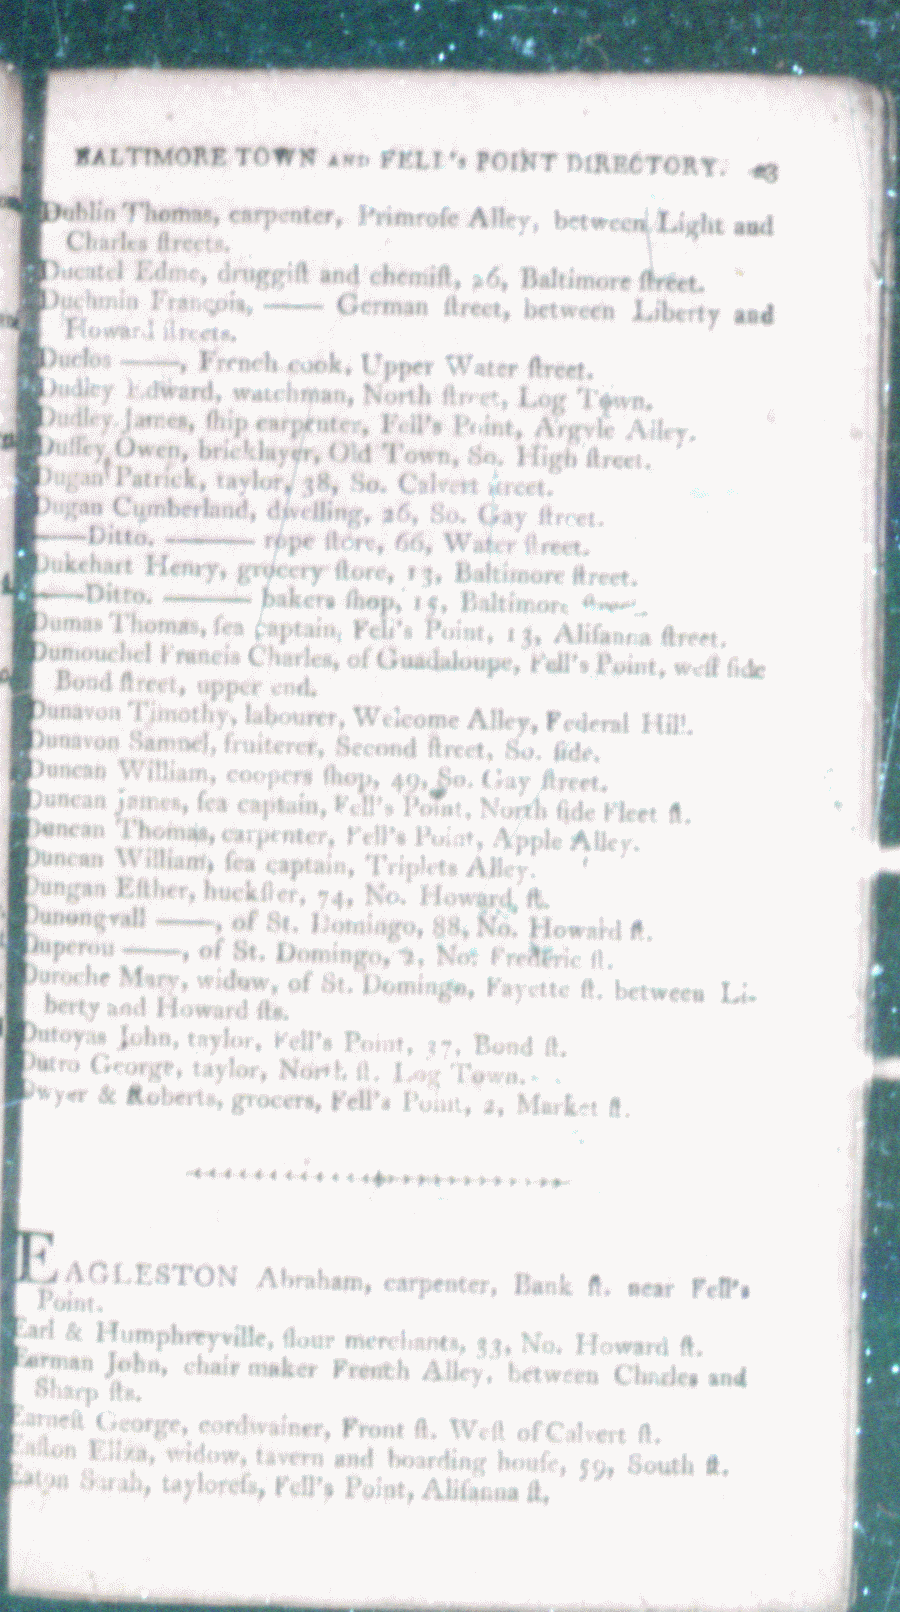 BALTIMORE TOWN AND FELL's POINT DIRECTORY. 23
Dublin Thomas, carpenter, Primroſe Alley, between Light and
Charles ſtreets.
Ducatel Edme, druggiſt and chemiſt, 26, Baltimore ſtreet.
Duchmin François, —— German ſtreet, between Liberty and
Howard ſtreets.
Duclos ——, French cook, Upper Water ſtreet.
Dudley Edward, watchman, North ſtreet, Log Town.
Dudley James, ſhip carpenter, Fell's Point, Argyle Alley.
Duffey Owen, bricklayer, Old Town, So. High ſtreet.
Dugan Patrick, taylor, 38, So. Calvert ſtreet.
Dugan Cumberland, dwelling, 26, So. Gay ſtreet.
——Ditto. ——— rope ſtore, 66, Water ſtreet.
Dukehart Henry, grocery ſtore, 13, Baltimore ſtreet.
——Ditto. ——— bakers ſhop, 15, Baltimore
Dumas Thomas, ſea captain, Fell's Point, 13, Aliſanna ſtreet.
Dumouchel Francis Charles, of Guadaloupe, Fell's Point, weſt ſide
Bond ſtreet, upper end.
Dunavon Timothy, labourer, Welcome Alley, Federal Hill.
Dunavon Samuel, fruiterer, Second ſtreet, So. ſide.
Duncan William, coopers ſhop, 49, So. Gay ſtreet.
Duncan james, ſea captain, Fell's Point, North ſide Fleet ſt.
Duncan Thomas, carpenter, Fell's Point, Apple Alley.
Duncan William, ſea captain, Triplets Alley.
Dungan Eſther, huckſter, 74, No. Howard ſt.
Dunongvall ——, of St. Domingo, 88, No. Howard ſt.
Duperou ——, of St. Domingo, 2, No. Frederic ſt.
Duroche Mary, widow, of St. Domingo, Fayette ſt. between Li-
berty and Howard ſts.
Dutoyas John, taylor, Fell's Point, 37, Bond ſt.
Dutro George, taylor, North ſt. Log Town.
Dwyer & Roberts, grocers, Fell's Point, 2, Market ſt.
EAGLESTON Abraham, carpenter, Bank ſt. near Fell's
Point.
Earl & Humphreyville, flour merchants, 33, No. Howard ſt.
Earman John, chair maker French Alley, between Charles and
Sharp ſts.
Earneſt George, cordwainer, Front ſt. Weſt of Calvert ſt.
Eaſton Eliza, widow, tavern and boarding houſe, 59, South ſt.
Eaton Sarah, tayloreſs, Fell's Point, Aliſanna ſt,